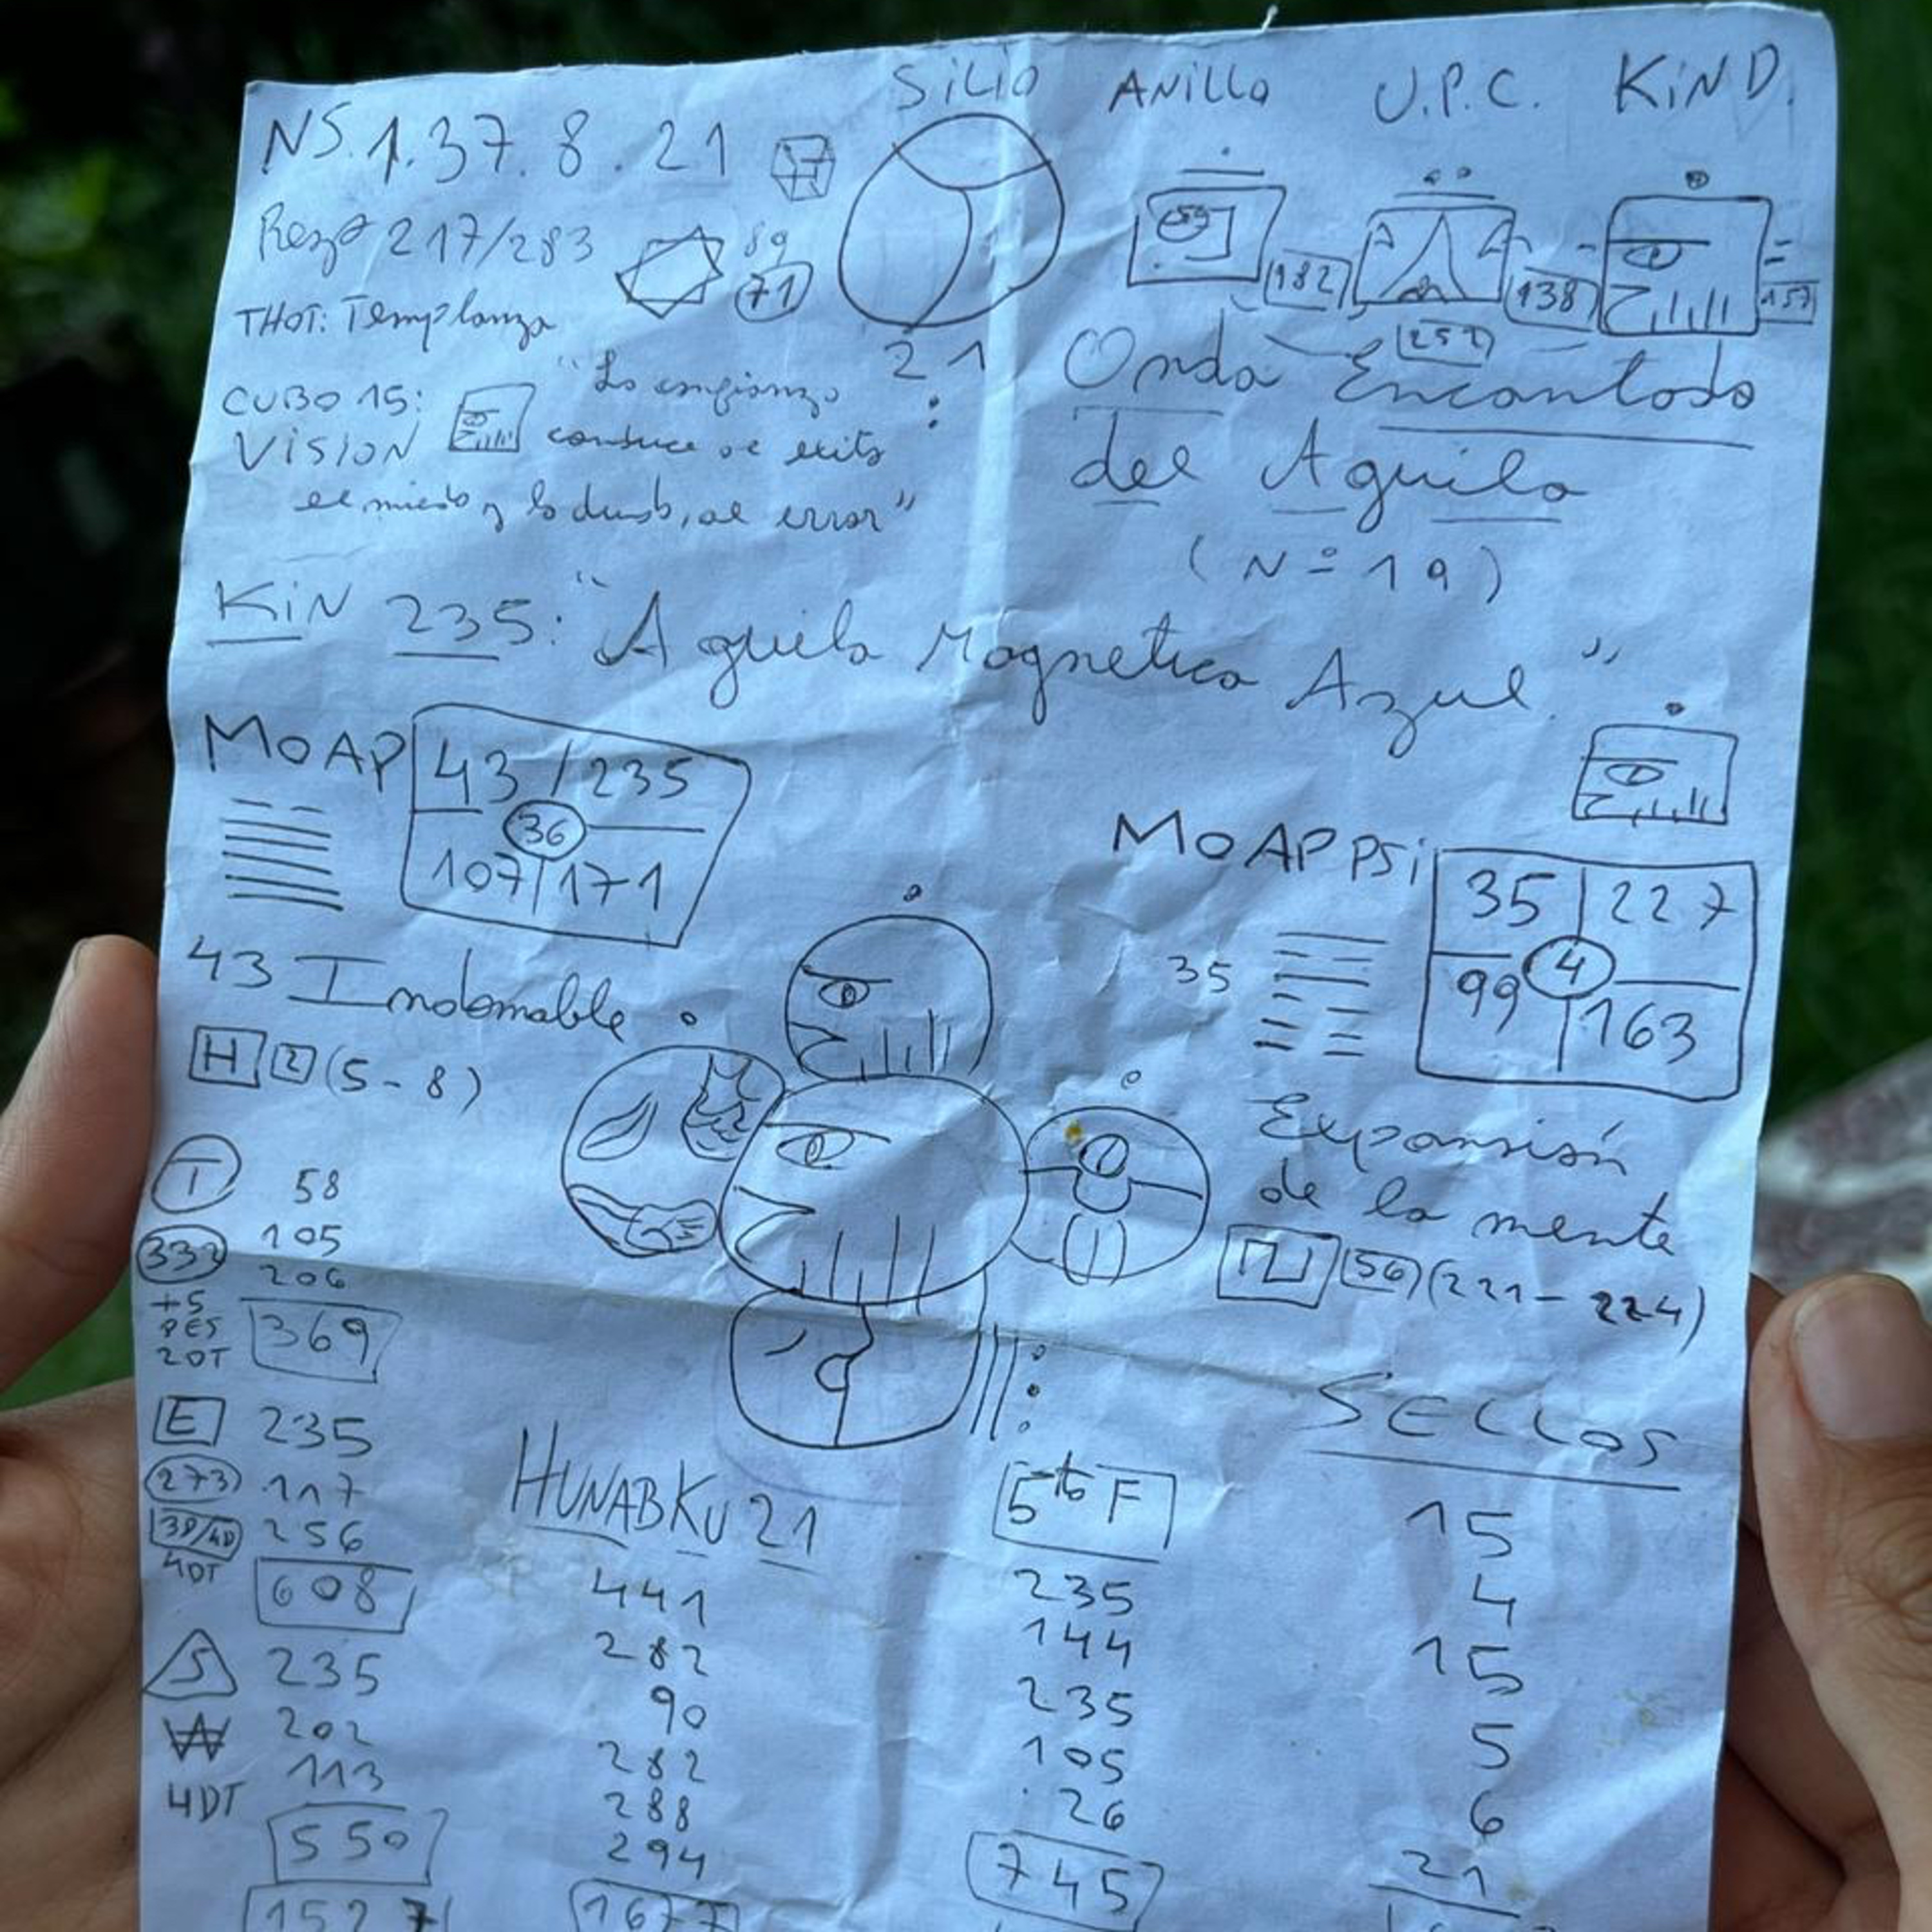 SiLiO ANiLLO U.P.C. KiND.
NS.1.37.8.21
Rezo 217/283 89
71
THOT: Templanza
21
182 138 157
252
CUBO 15:
VISION
"La confianza
conduce al exito
el miedo y la duda, al error"
Onda Encantada
del Aguila
(Nº 19)
KiN 235: "Aguila Magnetica Azul."
MOAP 43 235
36
107 171
MOAP PSi 35 227
4
99 163
43 Indomable
35
H 2 (5-8)
Expansión
de la mente
56 (221-224)
T 58
332 105
206
+5
PES
2DT 369
SELLOS
E 235
273 117
3D/4D 256
4DT 608
HUNABKU 21
441
282
90
282
288
294
1677
5to F
235
144
235
105
26
745
15
4
15
5
6
21
S 235
W 202
113
4DT
550
1527